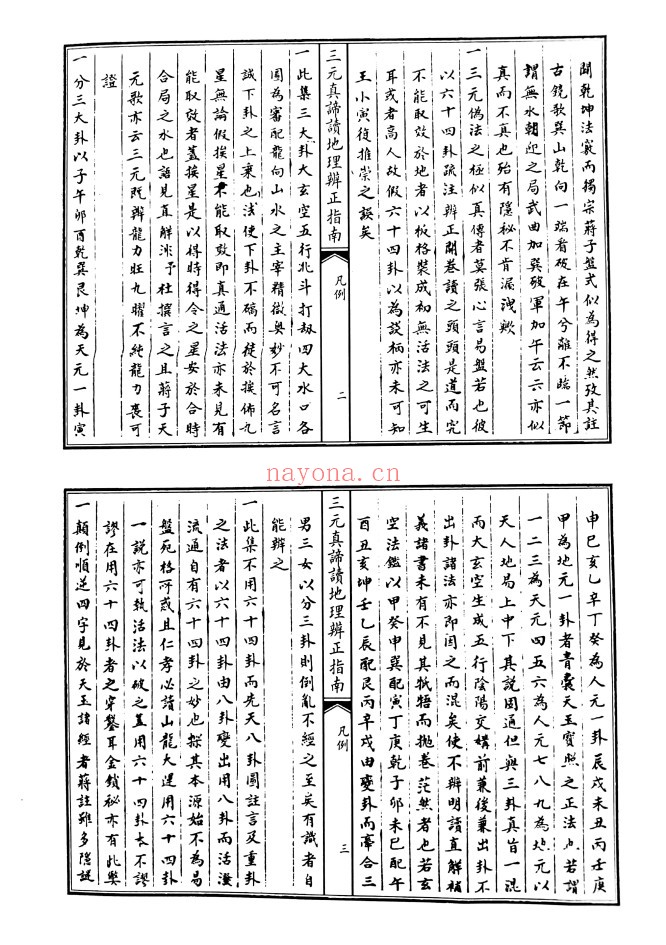 聞乾坤法竅而獨宗蔣子盤式似為得之然攷其註
古鏡歌巽山乾向一端看破在午兮離不臨一節
謂無水朝迎之局武曲加巽破軍加午云云亦似
真而不真也殆有隱秘不肯漏洩歟
一三元偽法之極似真傳者莫張心言易盤若也彼
以六十四卦疏注辨正開卷讀之頭頭是道而究
不能取效於地者以板格裝成初無活法之可生
耳或者高人故假六十四卦以為談柄亦未可知
王小寅復推崇之誤矣
三元真諦讀地理辨正指南
凡例
二
一此集三大卦大玄空五行北斗打刼四大水口各
圖為審配龍向山水之主宰精微奥妙不可名言
誠下卦之上乘也法使下卦不確而徒於挨佈九
星無論假挨星不能取效即真通活法亦未見有
能取效者蓋挨星是以得時得令之星安於合時
合局之水也語見直解洣予杜撰言之且蔣子天
元歌亦云三元既辨龍力旺九曜不純龍力喪可
證
一分三大卦以子午卯酉乾巽艮坤為天元一卦寅
申巳亥乙辛丁癸為人元一卦辰戌未丑丙壬庚
甲為地元一卦者青囊天玉寶照之正法也若謂
一二三為天元四五六為人元七八九為地元以
天人地局上中下其說固通但與三卦真旨一混
而大玄空生成五行陰陽交媾前兼後兼出卦不
出卦諸法亦即因之而混矣使不辨明讀直解補
義諸書未有不見其牴牾而拋卷茫然者也若玄
空法鑑以甲癸申巽配寅丁庚乾子卯未巳配午
酉丑亥坤壬乙辰配艮丙辛戌由變卦而牽合三
三元真諦讀地理辨正指南
凡例
三
男三女以分三卦則倒亂不經之至矣有識者自
能辨之
一此集不用六十四卦而先天八卦圖註言及重卦
之法者以六十四卦由八卦變出用八卦而活潑
流通自有六十四卦之妙也探其本源始不為易
盤宛格所惑且仁孝必讀山龍大運用六十四卦
一說亦可執活法以破之蓋用六十四卦本不謬
謬在用六十四卦者之穿鑿耳金鎖秘亦有此弊
一顛倒順逆四字見於天玉諸經者蔣註雖多隱謎
nayona.cn